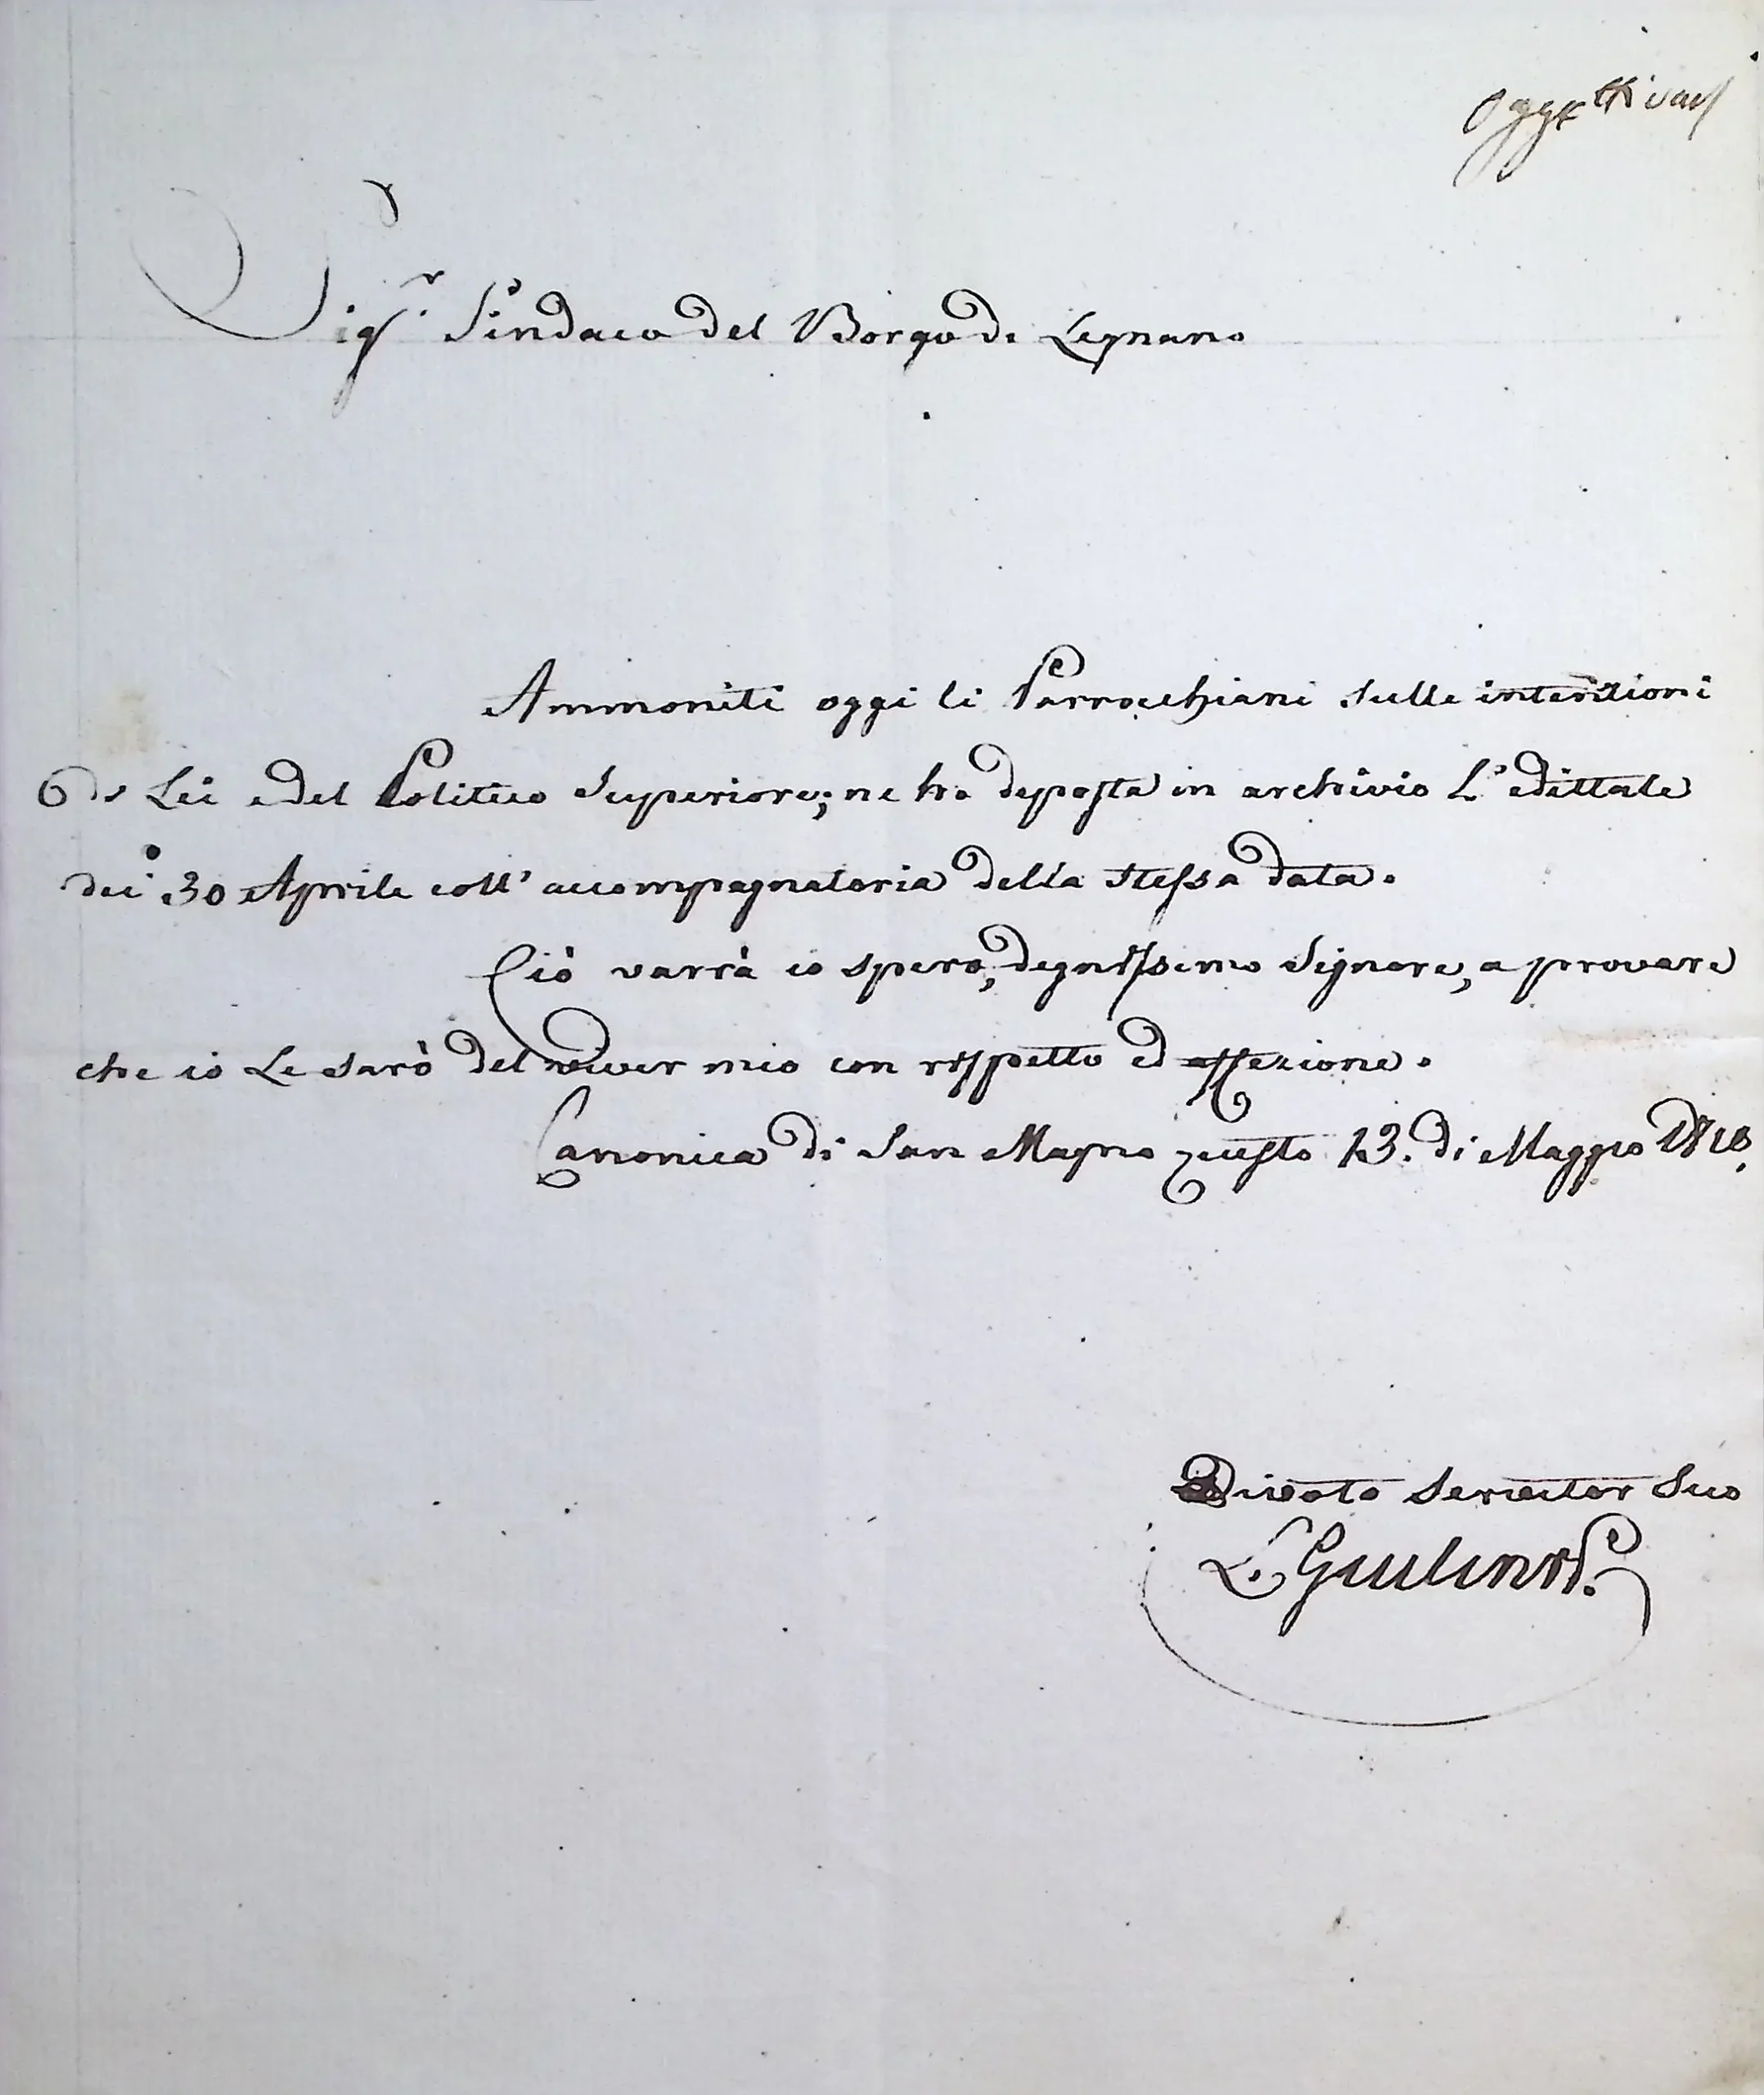 Oggetti varj
Sig.r Sindaco del Borgo di Legnano
Ammoniti oggi li Parrocchiani sulle intenzioni
di Lei e del Politico Superiore; ne ho deposta in archivio L'edittale
dei 30 Aprile coll' accompagnatoria della stessa data.
Ciò varrà io spero, degnissimo Signore, a provare
che io Le sarò del viver mio con rispetto ed affezione.
Canonica di San Magno questo 13. di Maggio
Divoto Servitor Suo